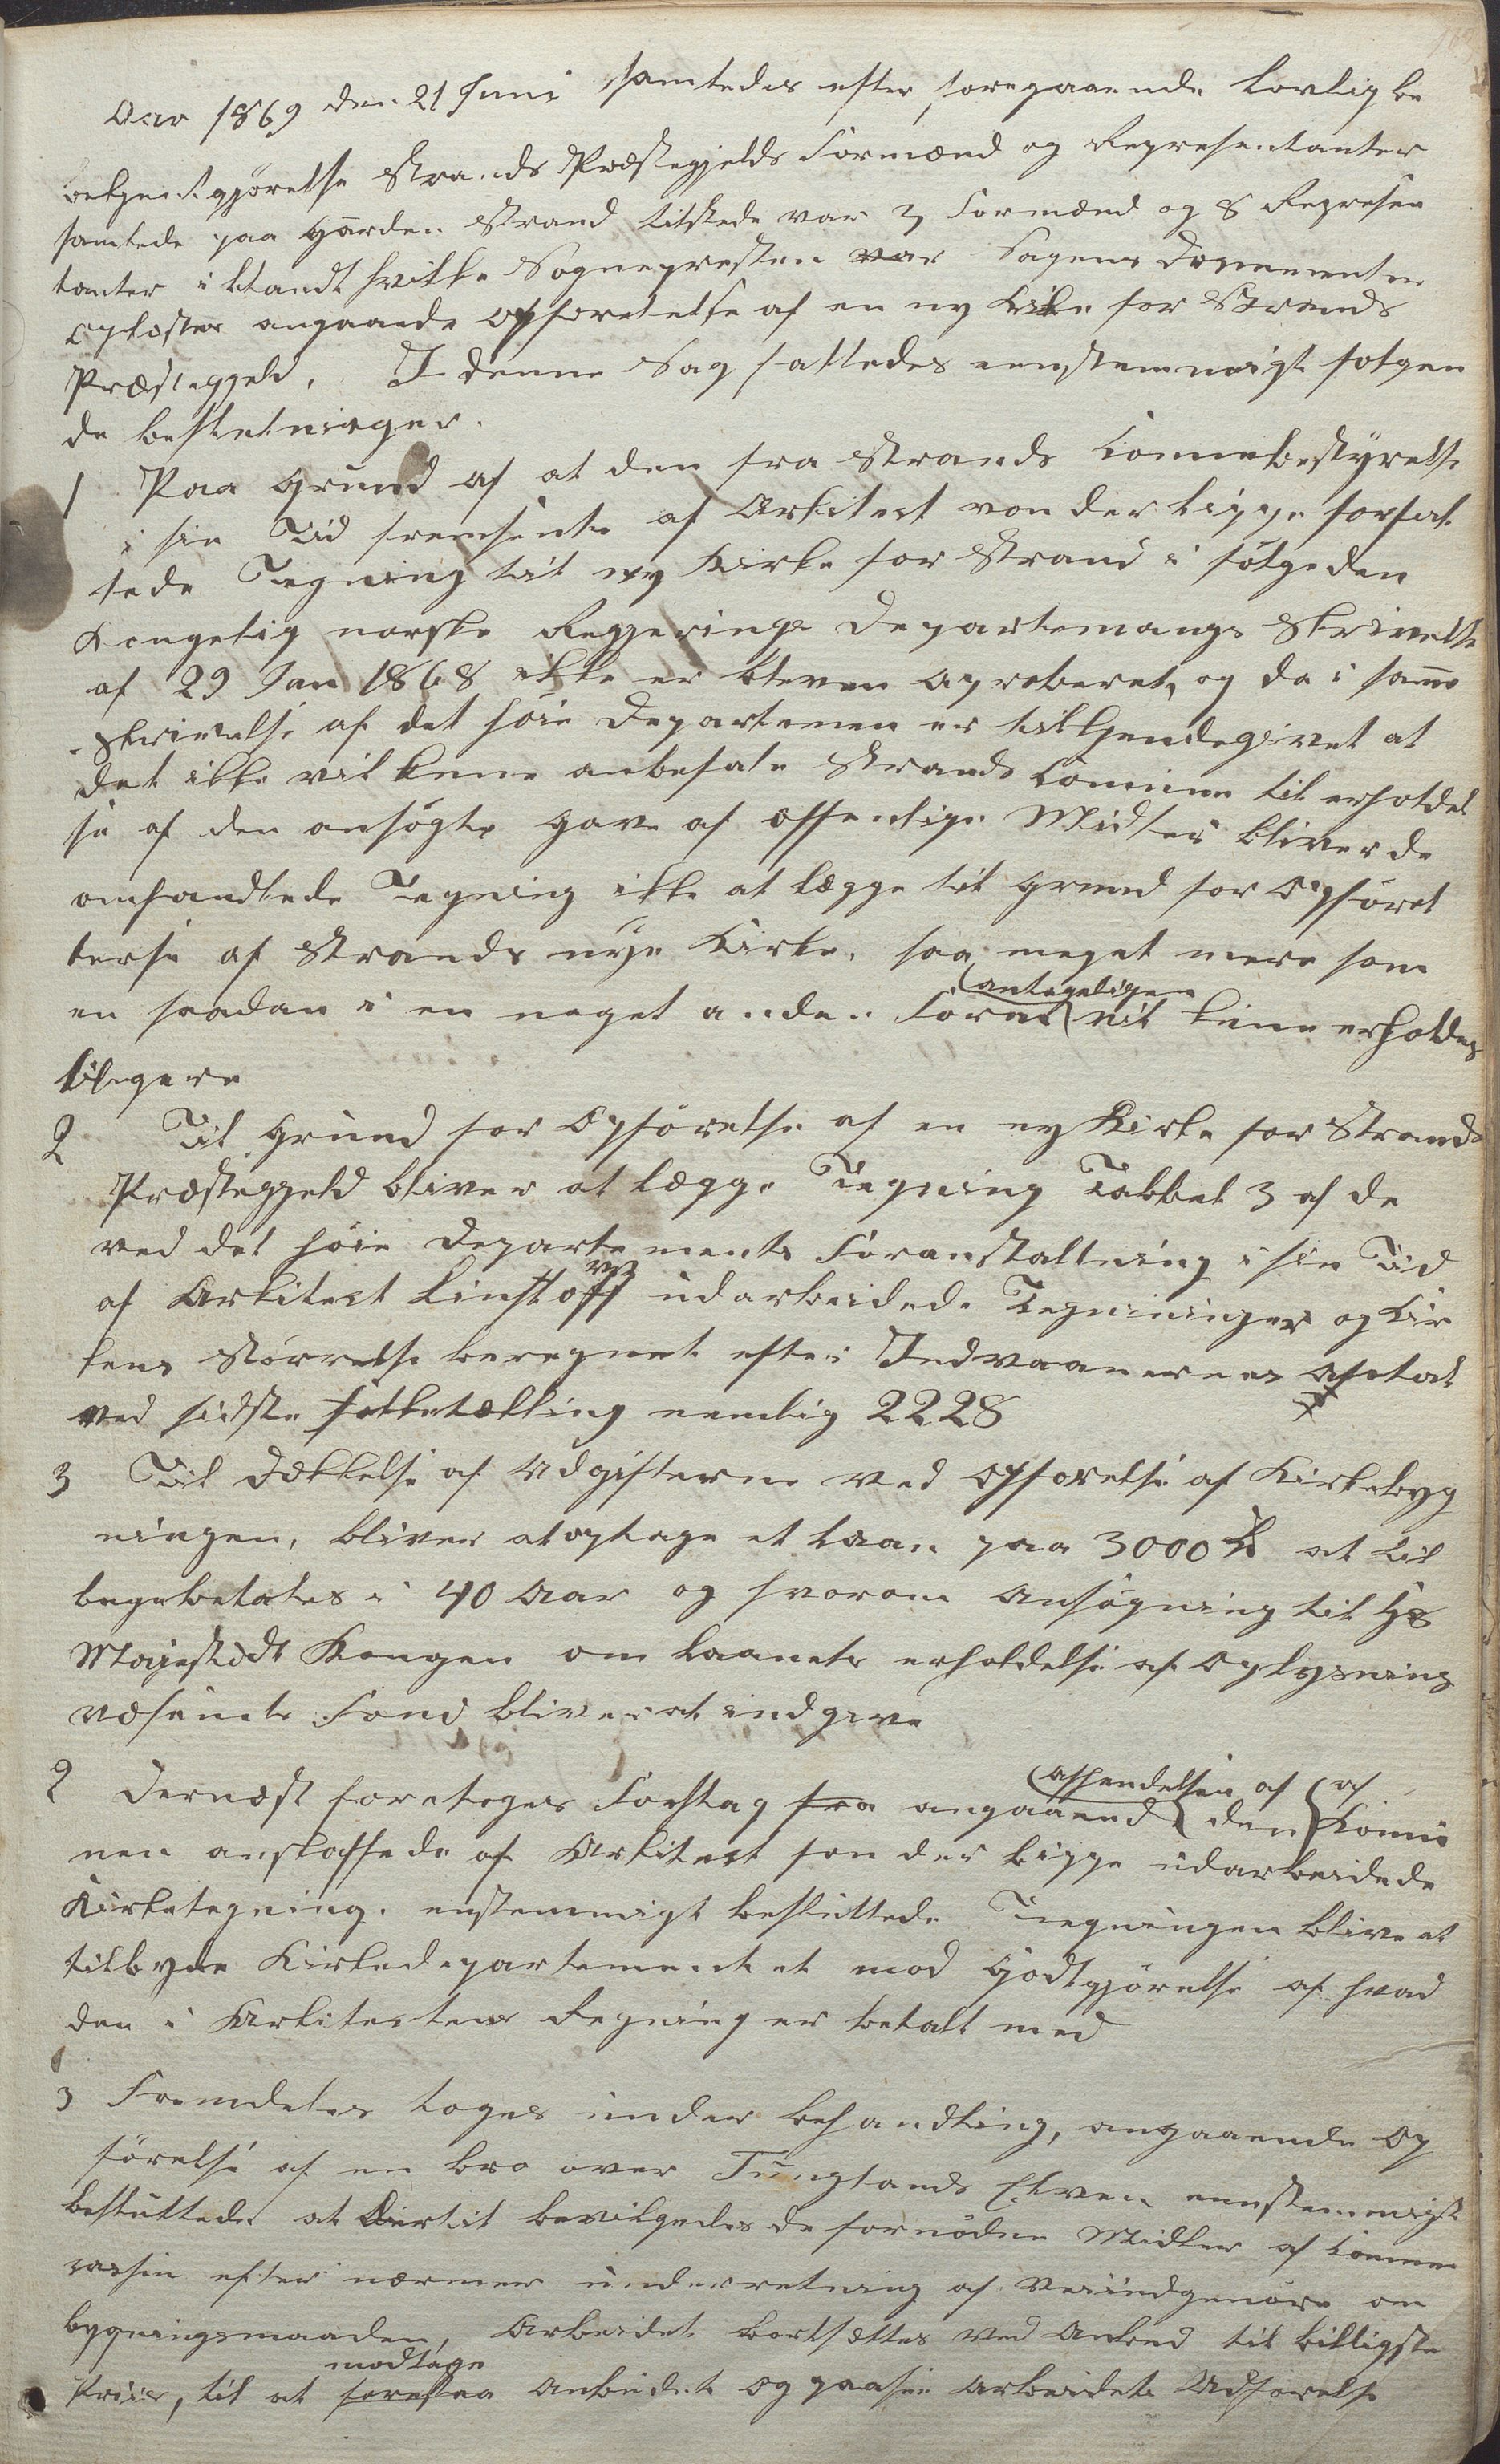 Aar 1869 den 21 Juni samledes efter foregaaende lovlig be
bekjendtgjørelse Strands Præstegjelds Formænd og Representanter
samlede paa Gaarden Strand tilstede var 3 Formænd og 8 Represen
tanter i blandt hvilke Sognepresten var Sagens Documenter
oplæstes angaaende Opførelse af en ny Kirke for Strands
Præstegjeld. I denne Sag fattedes eenstemmigt følgen
de beslutninger.
1 Paa Grund af at den fra Strands Communebestyrelse
i sin Tid fremsente af Arkitect von der Lippe forfat
tede Tegning til ny Kirke for Strand i følge den
Kongelig norske Regjerings Departemangs Skrivelse
af 29 Jan 1868 ikke er bleven aproberet, og da i samme
skrivelse af det høie Departemen er tilkjendegivet at
det ikke vil kune anbefale Strands Commune til erholdel
se af den ansøgte Gave af offentlige Midler bliver de
omhandlede Tegning ikke at lægge til Grund for Opførel
terse af Strands nye Kirke, saa meget mere som
en saadan i en noget anden Form antageligen vil kune erholdes
biligere
2 Til Grund for Opførelse af en ny Kirke for Strands
Præstegjeld bliver at lægge Tegning Tabbel 3 af de
ved det høie Departements Foranstaltning i sin Tid
af Arkitect Linstoff udarbeidede Tegninger og Kir
kens Størrelse beregnet efter Indvaanernes Antal
ved sidste Folketælling nemlig 2228
3 Til Dekkelse af Udgifterne ved Opførelse af Kirkebyg
ningen, bliver at optage et Laan paa 3000 at til
bagebetales i 40 Aar og hvorom Ansøgning til Hs
Majestædt Kongen om Laanets erholdelse af Oplysnings
væsenets Fond bliver at indgive
2 Dernæst foretoges Forslag fra angaaende afhendelsen af den af Komu
nen anskaffede af Arkitect fon der Lippe udarbeidede
Kirketegning. enstemmigt besluttede Tegningen blive at
tilbyde Kirkedepartementet mod Godtgjørelse af hvad
den i Arkitectens Regning er betalt med
3 Fremdeles toges under behandling, angaaende Op
førelse af en bro over Tunglands Elven eenstemmigt
besluttede at Dertil bevilgedes de fornødne Midler af Comune
cassen efter nærmere underretning af om
bygningsmaaden, Arbeidet bortsættes ved Anbud til billigste
Priis, til at forestaa modtage Anbudet og paase Arbeidets Udførelse